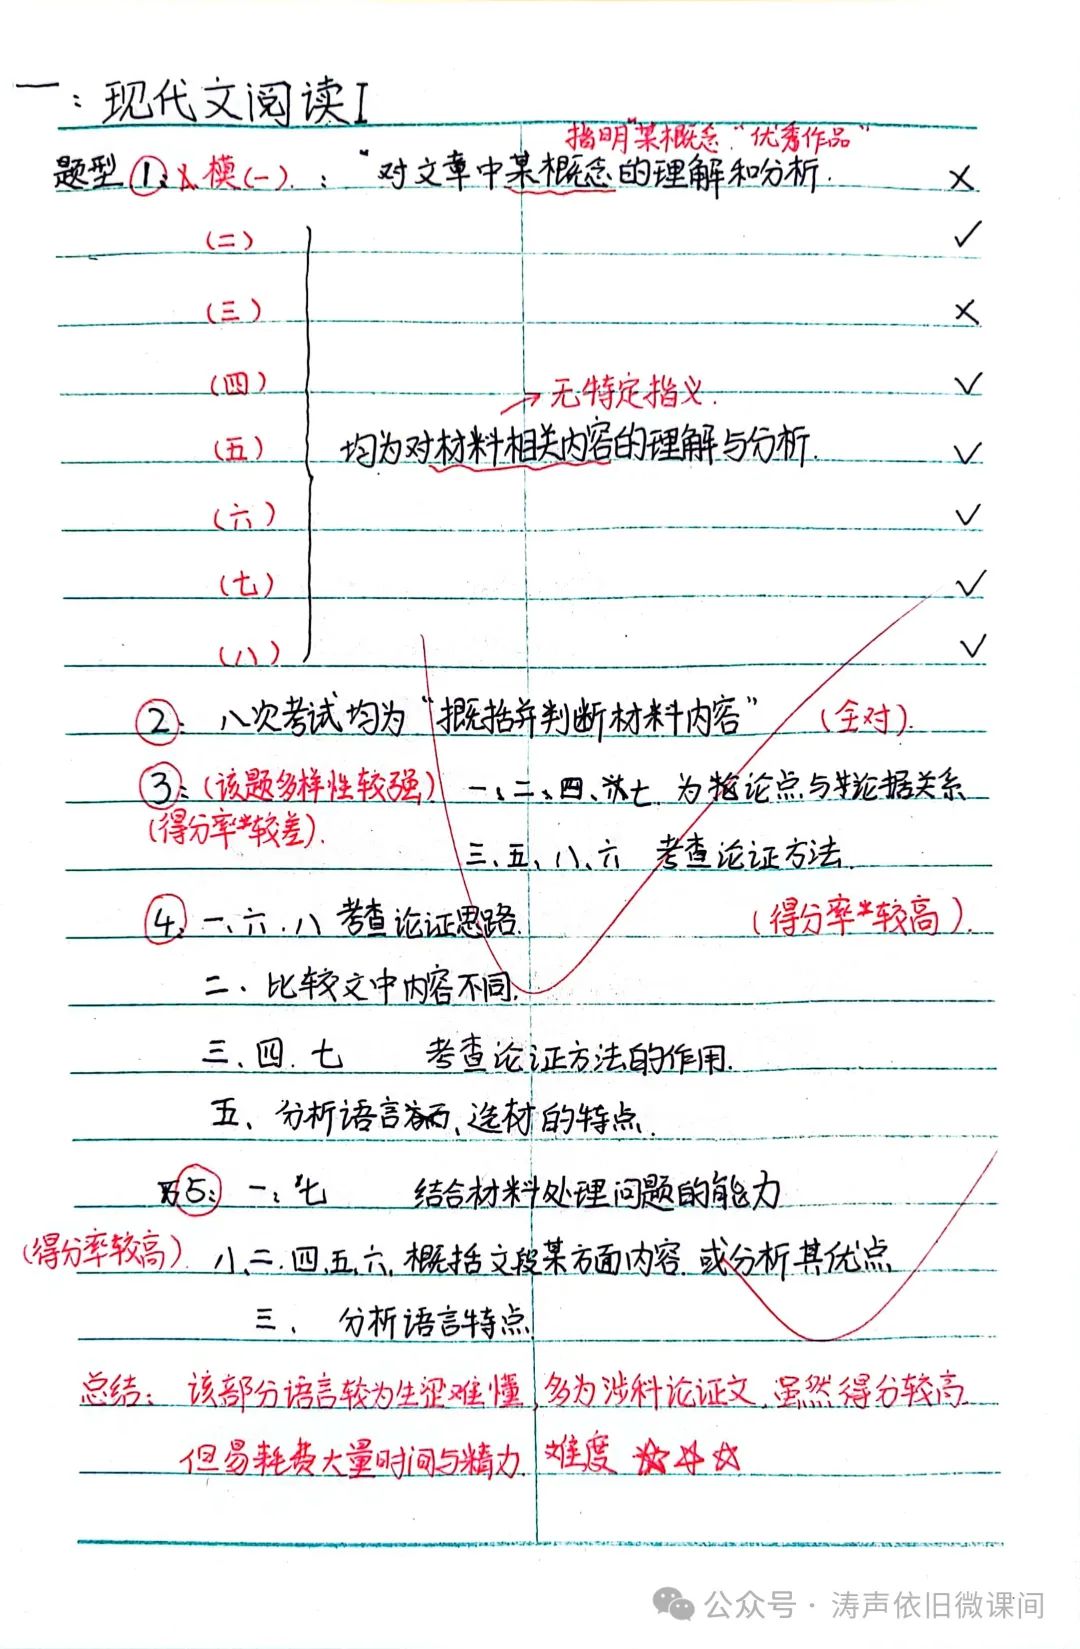 一：现代文阅读I
指明"某概念"优秀作品"
题型①：八模(一)：“对文章中某概念的理解和分析. ×
(二) ✓
(三) ×
(四) ✓
→无特定指义.
(五) 均为对材料相关内容的理解与分析. ✓
(六) ✓
(七) ✓
(八) ✓
②：八次考试均为“概括并判断材料内容” (全对).
③：(该题多样性较强) 一、二、四、七 为论点与论据关系
(得分率较差). 三、五、八、六 考查论证方法.
④：一、六、八 考查论证思路. (得分率较高).
二、比较文中内容不同.
三、四、七 考查论证方法的作用.
五、分析语言、选材的特点.
⑤：一、七 结合材料处理问题的能力
(得分率较高) 八、二、四、五、六、概括文段某方面内容.或分析其优点
三、 分析语言特点.
总结：该部分语言较为生涩难懂，多为涉科论证文，虽然得分较高
但易耗费大量时间与精力. 难度☆☆☆
公众号·涛声依旧微课间